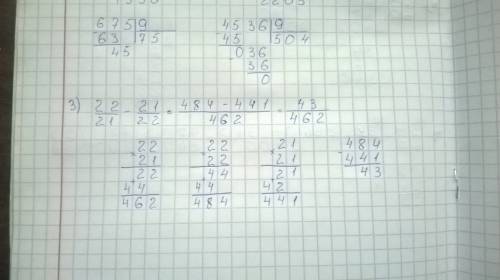 675 9
63 75
45
4536 9
45 504
036
36
0
3) 22/21 - 21/22 = 484-441/462 = 43/462
22
× 21
22
44
462
22
× 22
44
44
484
21
× 21
21
42
441
- 484
441
43